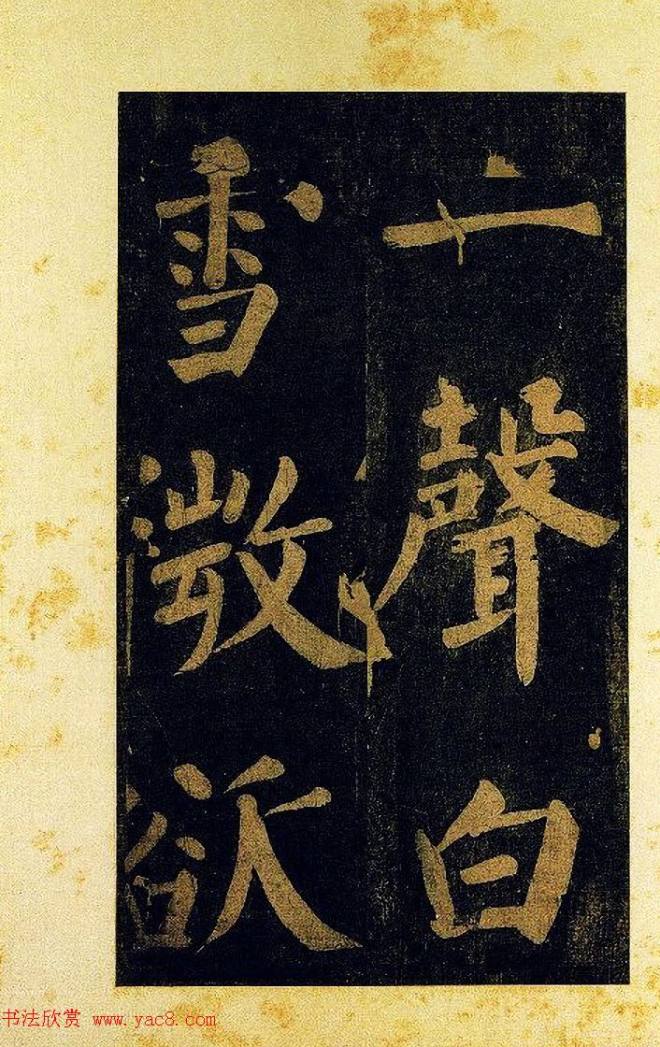 一聲白
雪微欲
书法欣赏 www.yac8.com